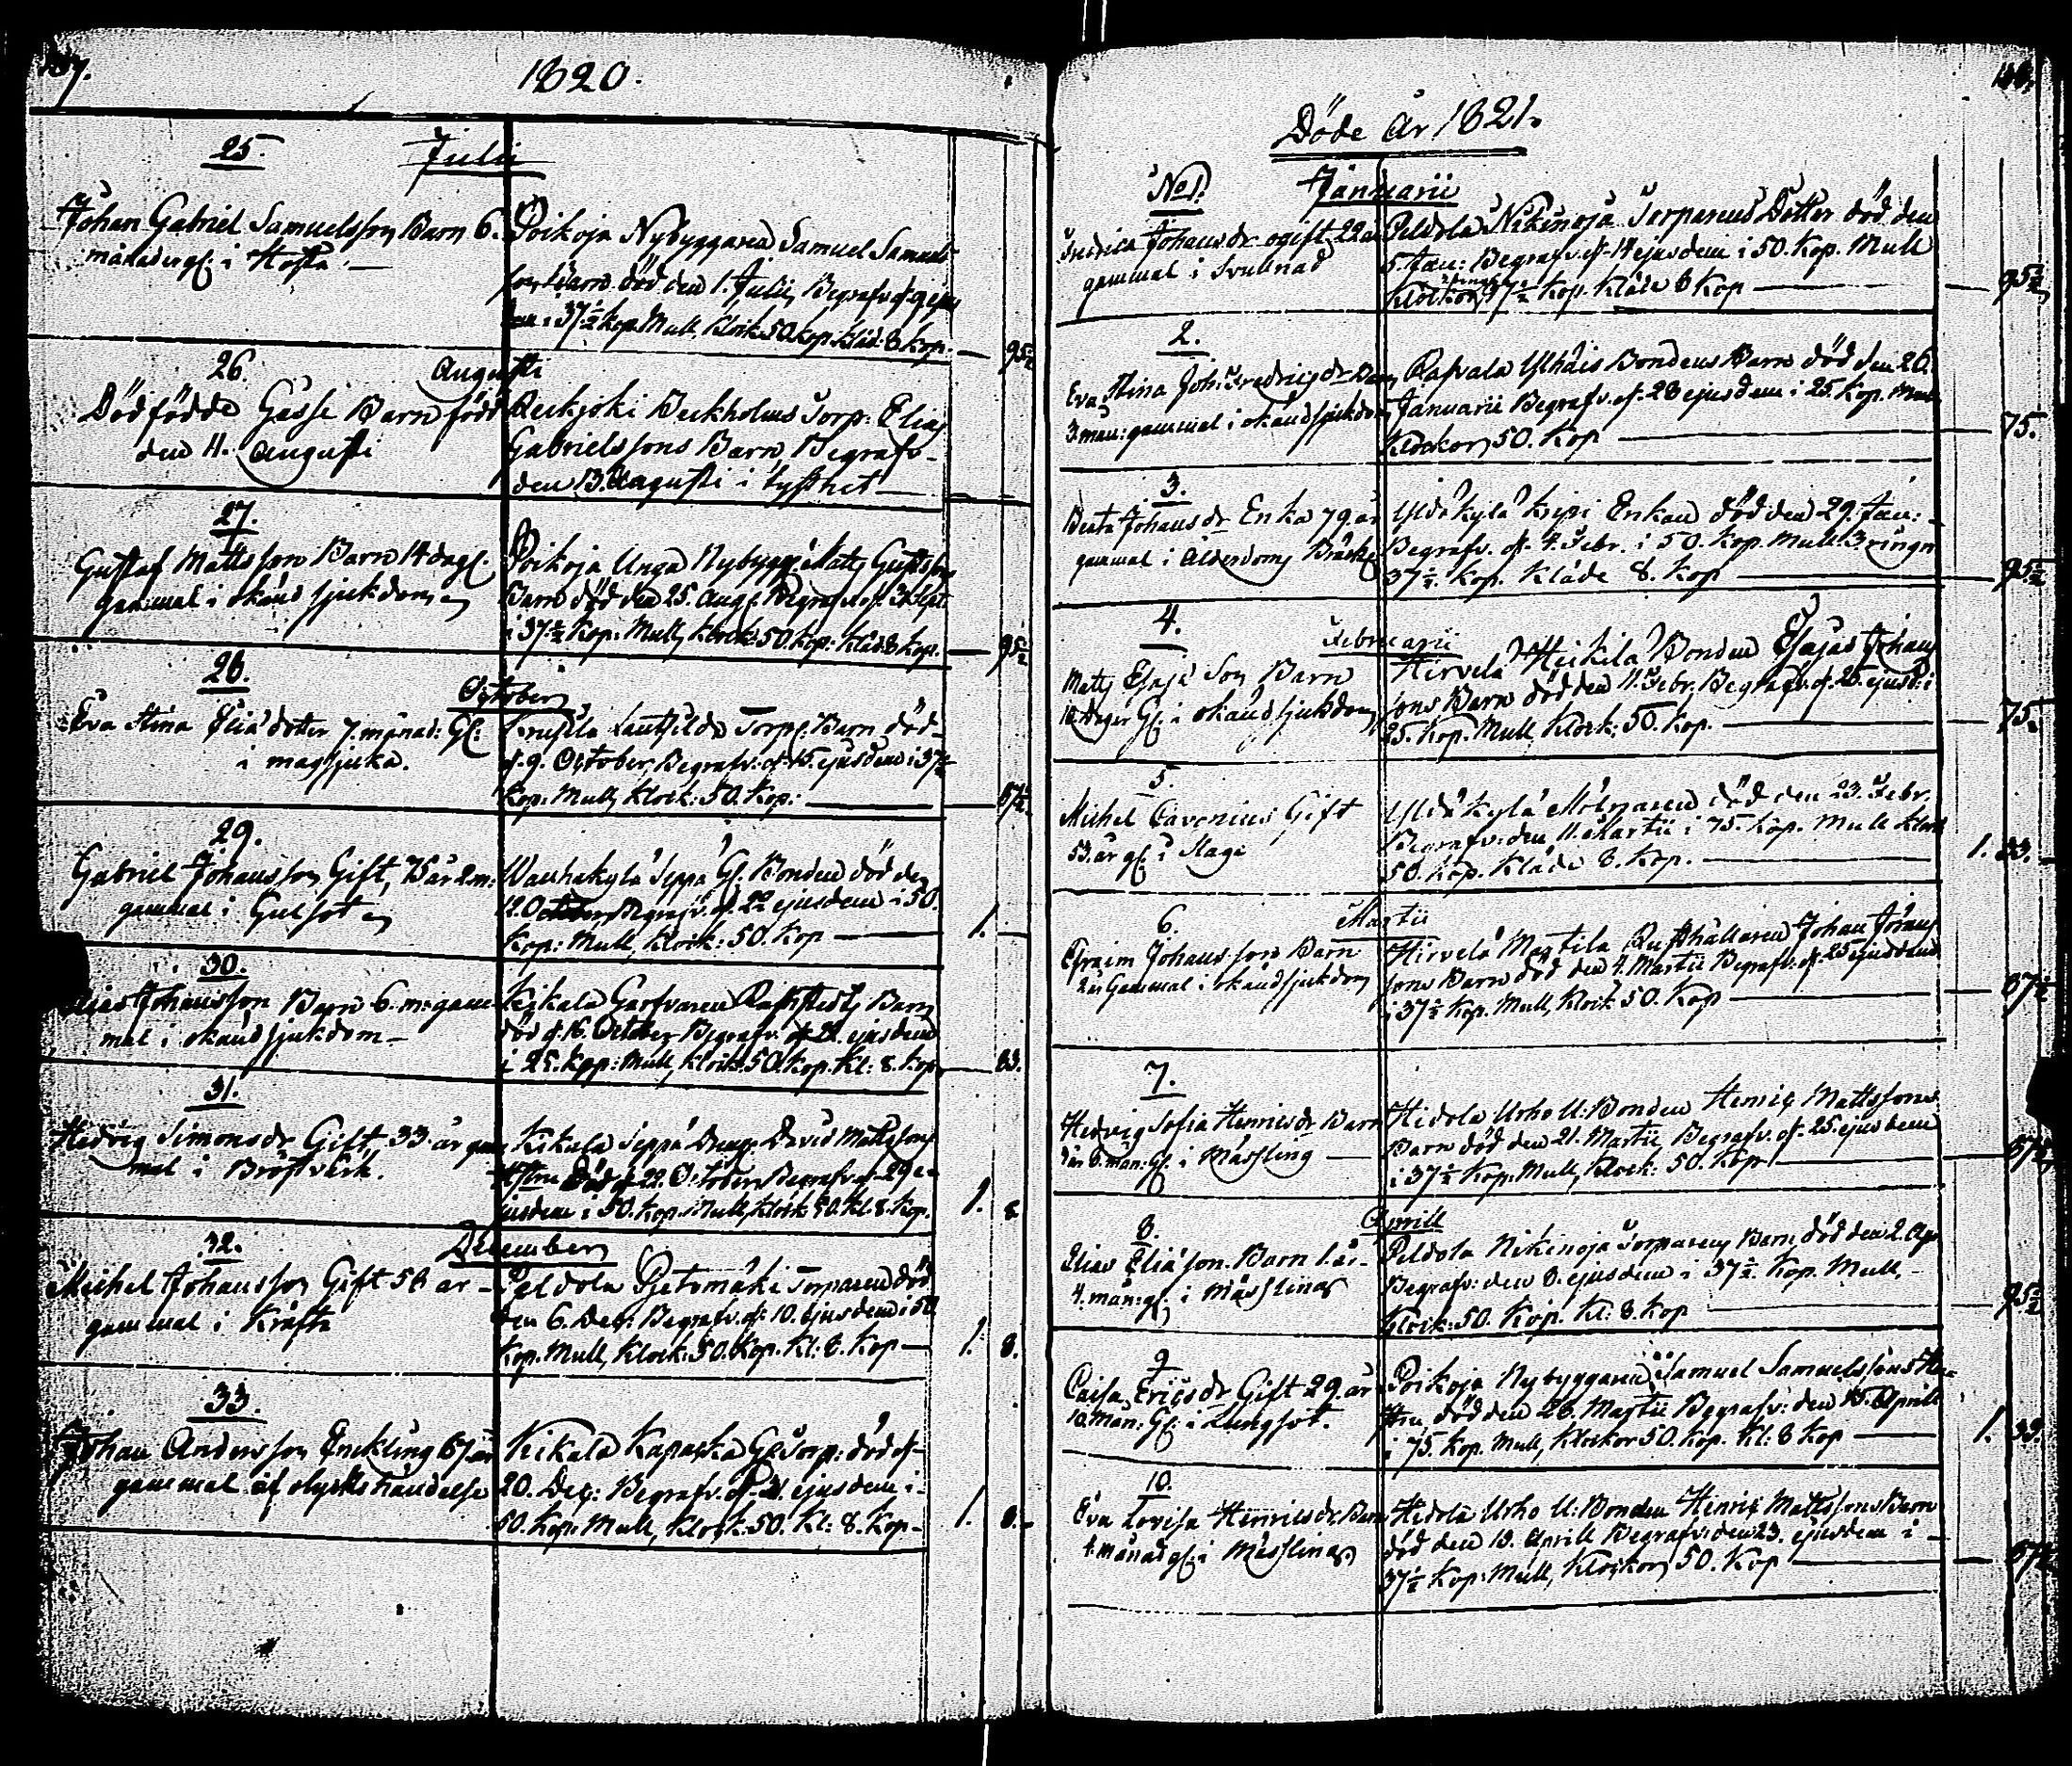 1820.
25. Julii
Johan Gabriel Samuelsson Barn 6.
månader gl: i Hosta
Poikoja Nybyggaren Samuel Samuels
sons Barn död den 1. Julii, Begrafv. d. 9 ejus
dem i 37½ Kop. Mull, Klock: 50 Kop: Kläd: 8 Kop.
95½
26. Augusti
Dödfödde Gosse Barn född
den 11. Augusti
Reckjoki Beckholms Torp: Elias
Gabrielssons Barn, Begrafv-
den 13. Augusti i tysthet
27.
Gustaf Mattsson Barn 14 dag.
gammal i okänd sjukdom
Poikoja Unga Nybygg: Matts Gustafss
Barn död den 25. Aug: Begrafv. d. 3 Sept
i 37½ Kop: Mull, Klock: 50 Kop: Kläd 8 Kop.
95½
28. October
Eva Stina Eliädotter 7. månad: Gl:
i magsjuka.
Lautsilda Torp: Barn död
d. 9. October, Begrafv: d. 15. ejusdem i 37½
Kop: Mull, Klock: 50. Kop:
87½
29.
Gabriel Johansson Gift, 75 år 2 m:
gammal i Gulsot
Wanhakylä Seppä Gl. Bonden död den
12. October, Begrafv. d. 22 ejusdem i 50.
Kop: Mull, Klock: 50. Kop
1.
30.
Johansson Barn 6. m: gam-
mal i okänd sjukdom
Kikala Garfvaren Barn
död d. 16. October Begrafv. d. 22. ejusdem
i 25. Kop: Mull, Klock: 50. Kop. Kl: 8. Kop
83.
31.
Hedvig Simonsdr Gift 33 år gam
mal i Bröstvärk.
Kikala Seppä Dreng: David Mattssons
Hstru Död d. 22. October Begrafv. d. 29 e-
jusdem i 50. Kop. Mull, Klock 50. Kl. 8. Kop.
1. 8.
32. December
Michel Johansson Gift 58 år
gammal i Kräfta
Peldola Torparen död
den 6. Dec: Begrafv. d. 10. ejusdem i 50
Kop. Mull, Klock: 50. Kop. Kl: 8. Kop
1. 8.
33.
Johan Andersson Enckling 67 år
gammal af olyckshändelse
Kikala Kapacka Gl Torp: död d.
20. Dec: Begrafv. d. 21. ejusdem i
50. Kop: Mull, Klock. 50. Kl: 8. Kop
1. 8.
Döde År 1821.
No 1. Januarii
Fredrica Johansdr ogift 22 år
gammal i Svullnad
Peldola Nikinoja Torparens Dotter död den
5. Jan: Begrafv. d. 14 ejusdem i 50. Kop. Mull
Klockor 37½ Kop. Kläde 8 Kop
95½
2.
Eva Stina Joh: Fredricsdr Barn
3. mån: gammal i okänd sjukdom
Rapala Ylhäis Bondens Barn död den 26.
Januarii Begrafv. d. 28 ejusdem i 25. Kop. Mull
Klockor 50. Kop
75.
3.
Beata Johansdr Enka 79 år
gammal i Ålderdoms Bräckl
Yldökylä Enkan död den 29. Jan:
Begrafv. d. 4. Febr. i 50. Kop. Mull. 3 ringn
37½. Kop. Kläde 8. Kop
95½
4. Februarii
Matts Esajä Son Barn
10. dagar Gl: i okänd sjukdom
Hirvelä Heikilä Bonden Esajas Johans
sons Barn död den 11. Febr. Begrafv. d. 25. ejusd: i
25. Kop. Mull, Klock: 50. Kop.
75.
5.
Michel Cavonius Gift
53. år gl. i Slage
Yldökylä Mölnaren död den 23. Febr.
Begrafv: den 11. Martii i 75. Kop. Mull Klock
50. Kop. Kläde 8. Kop.
1. 33.
6. Martii
Efraim Johansson Barn
2 år Gammal i okänd sjukdom
Hirvelä Martila Rusthållaren Johan Johans
sons Barn död den 4. Martii Begrafv. d. 25 ejusdem
i 37½ Kop. Mull, Klock 50. Kop
87½
7.
Hedvig Sofia Henricsdr Barn
8. mån: Gl: i Mässling
Hidola Urho U: Bonden Henric Mattssons
Barn död den 21. Martii Begrafv. d. 25. ejusdem
i 37½ Kop. Mull, Klock: 50. Kop
87½
8. Aprill
Elias Eliäson Barn 1. år
4. mån: gl. i Mässling
Peldola Nikinoja Torparens Barn död den 2. Apr
Begrafv: den 8. ejusdem i 37½ Kop. Mull,
Klock: 50. Kop. Kl: 8. Kop
95½
9
Caisa Ericsdr Gift 29. år
10. Mån: Gl: i Lungsot.
Poikoja Nybyggaren Samuel Samuelssons Hu-
stru död den 28. Martii Begrafv: den 15. Aprill
i 75. Kop. Mull, Klockor 50. Kop. Kl: 8 Kop
1. 33.
10.
Eva Lovisa Henricsdr Barn
1. månad gl: i Mässling
Hidola Urho U: Bonden Henric Mattssons Barn
död den 19. Aprill Begrafv: den 23. ejusdem i
37½ Kop: Mull, Klockor 50. Kop
87½